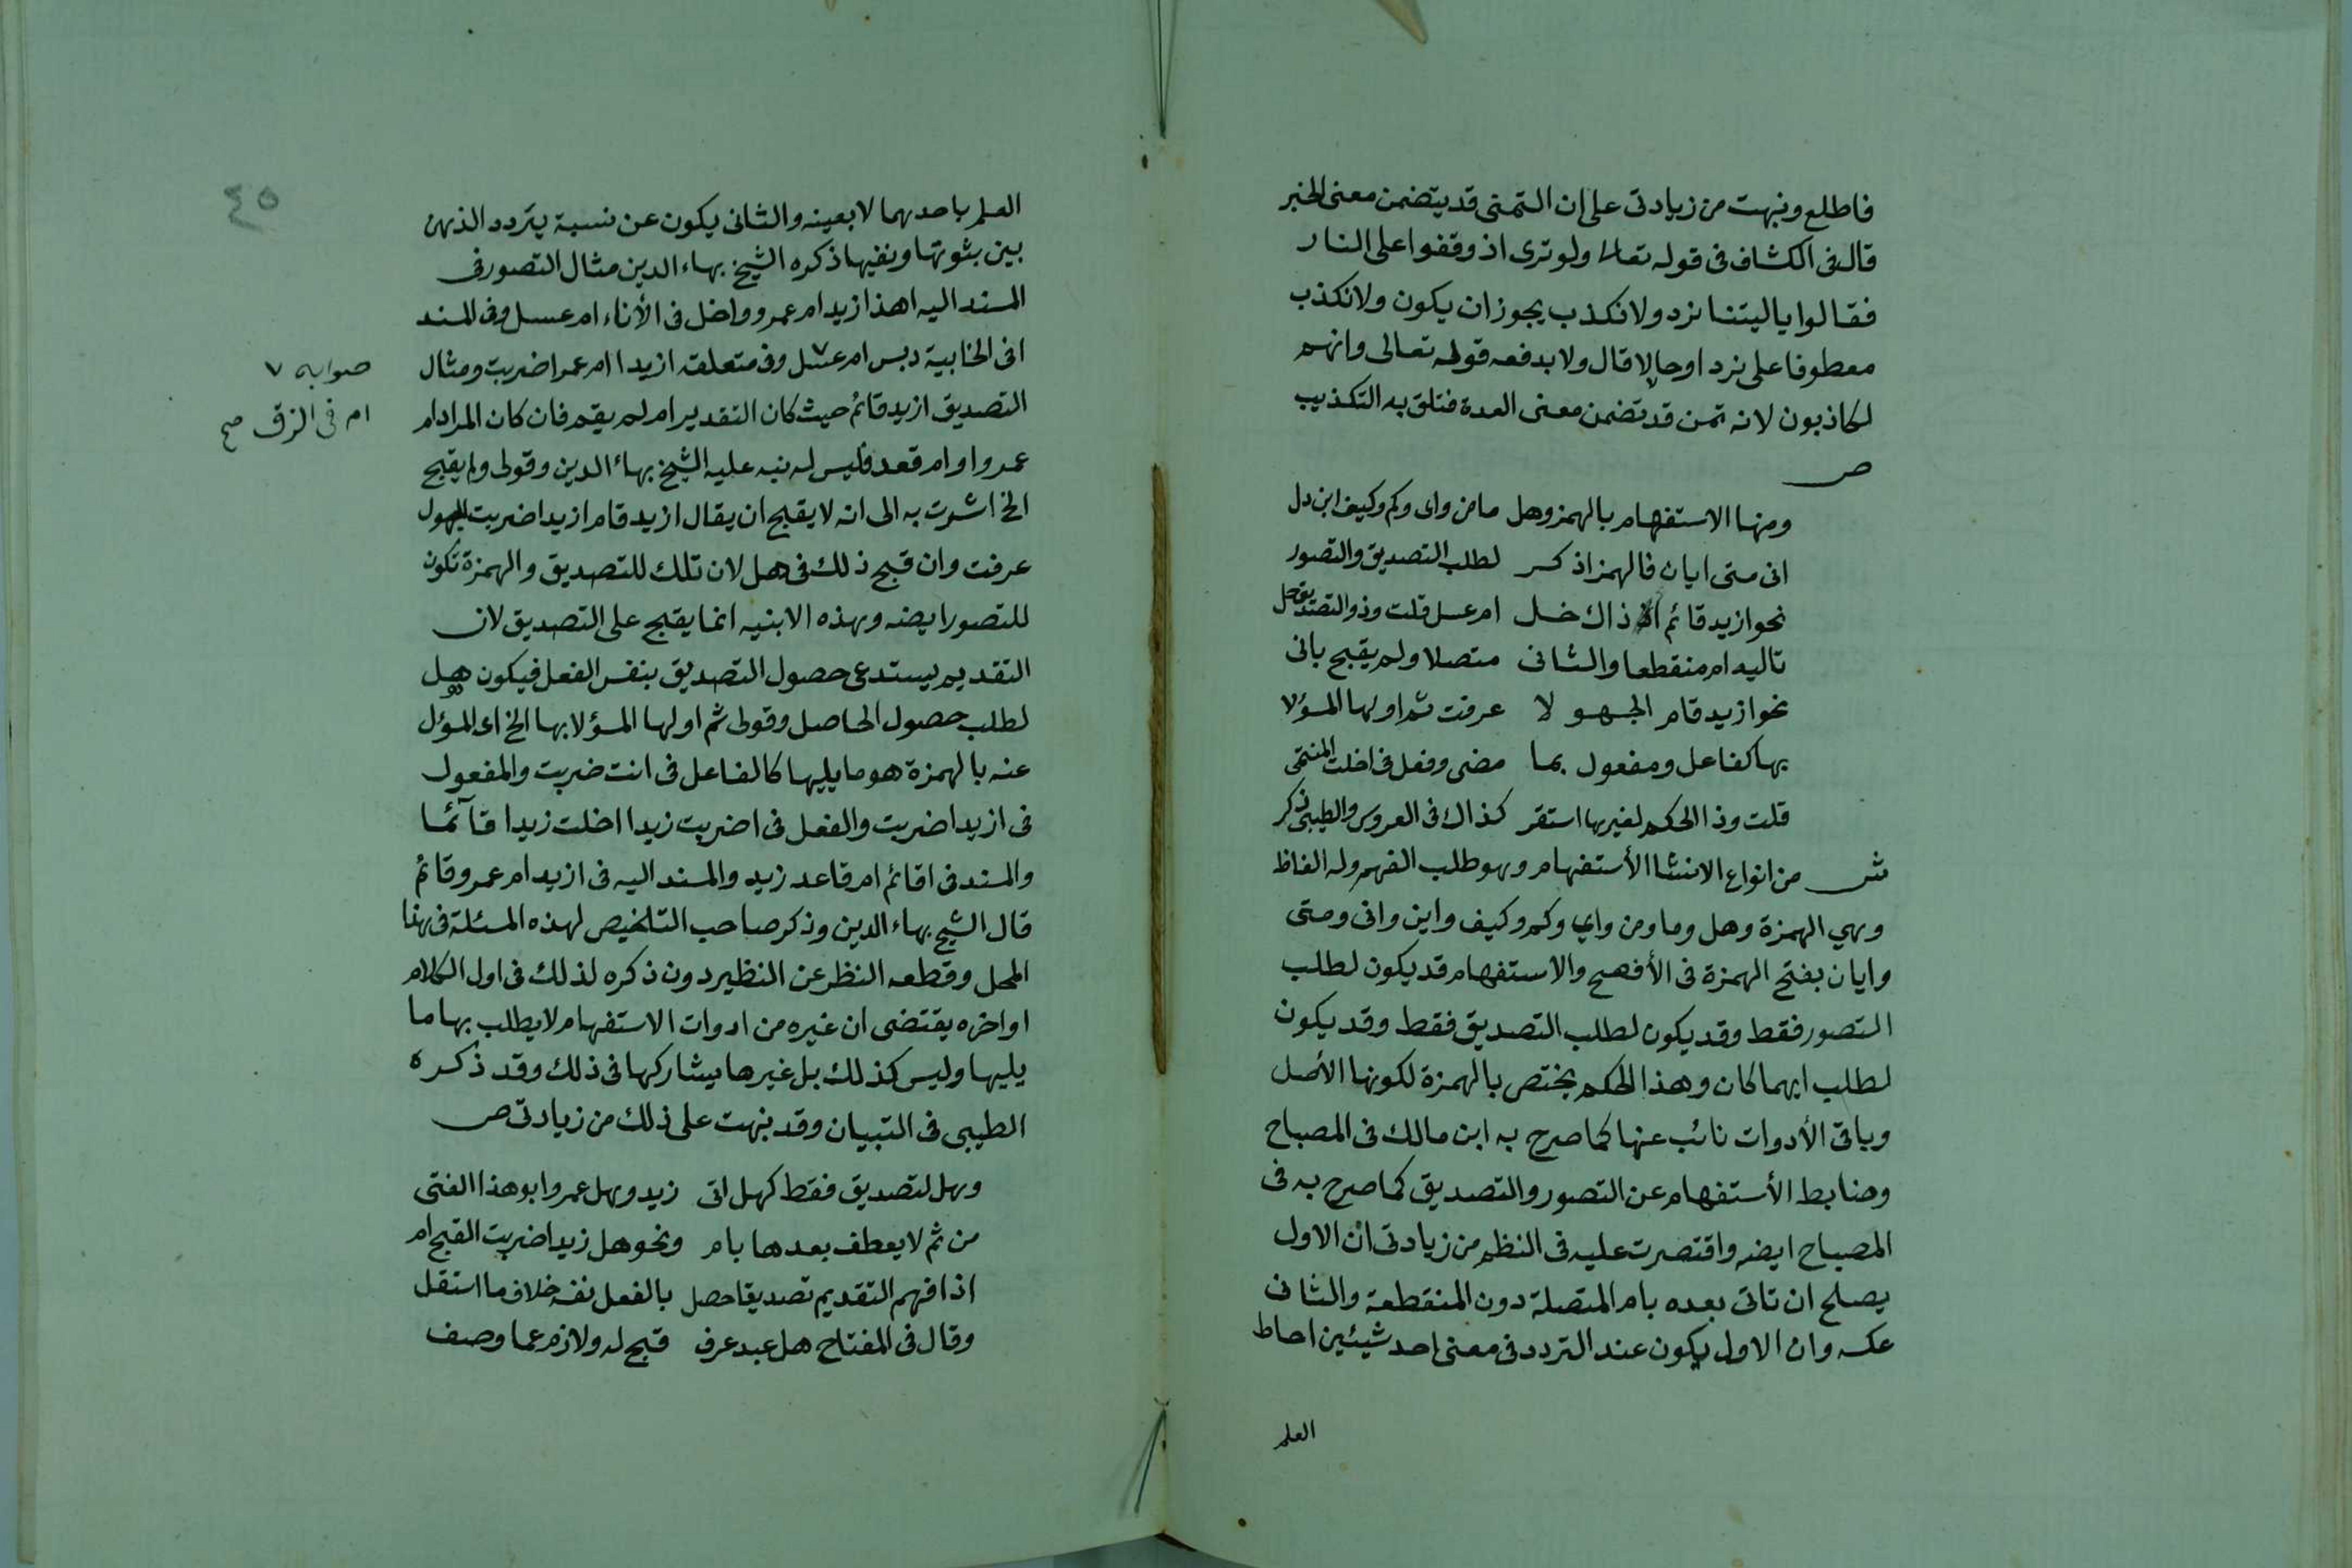 فاطلع ونبهت من زيادتى على ان التمنى قد يتضمن معنى الخبر
قال فى الكشاف فى قوله تعالى ولو ترى اذ وقفوا على النار
فقالوا ياليتنا نرد ولا نكذب يجوز ان يكون ولا نكذب
معطوفا على نرد او حالا قال ولا يدفعه قوله تعالى وانهم
لكاذبون لانه تمن قد تضمن معنى العدة فتلق به التكذيب
ص
ومنها الاستفهام بالهمز وهل ما من واى وكم وكيف اين دل
انى متى ايان فالهمز اذكر لطلب التصديق والتصور
نحو ازيد قائم اذ ذاك خل ام عسل قلت وذو التصديق حل
تاليه ام منقطعا والثانى متصلا ولم يقبح بانى
نحو ازيد قام المجهولا عرفت ثم اولها المسؤلا
بها كفاعل ومفعول بما مضى وفعل فى اخلت المنتمى
قلت وذا الحكم لغيرها استقر كذاك فى العروس والطيبى ذكر
ش من انواع الانشا الأستفهام وهو طلب الفهم وله الفاظ
وهي الهمزة وهل وما ومن واي وكم وكيف واين وانى ومتى
وايان بفتح الهمزة فى الأفصح والاستفهام قد يكون لطلب
التصور فقط وقد يكون لطلب التصديق فقط وقد يكون
لطلب ايهما كان وهذا الحكم يختص بالهمزة لكونها الأصل
وباقى الأدوات نائب عنها كما صرح به ابن مالك فى المصباح
وضابط الأستفهام عن التصور والتصديق كما صرح به فى
المصباح ايضه واقتصرت عليه فى النظم من زيادتى ان الاول
يصلح ان تاتى بعده بام المتصلة دون المنقطعة والثانى
عكسه وان الاول يكون عند التردد فى معنى احد شيئين احاط
العلم
٤٥
العلم باحدهما لا بعينه والثانى يكون عن نسبة يتردد الذهن
بين بثوتها ونفيها ذكره الشيخ بهاء الدين مثال التصور فى
المسند اليه اهذا زيد ام عمرو واخل فى الأناء ام عسل وفى المسند
افى الخابية دبس ام عسل وفى متعلقه ازيدا ام عمرا ضربت ومثال
صوابه ٧
ام فى الزق صح
التصديق ازيد قائم حيث كان التقدير ام لم يقم فان كان المراد ام
عمرو او ام قعد فليس له نبه عليه الشيخ بهاء الدين وقولى ولم يقبح
الخ اشرت به الى انه لا يقبح ان يقال ازيد قام ازيدا ضربت المجهول
عرفت وان قبح ذلك فى هل لان تلك للتصديق والهمزة تكون
للتصور ايضه وهذه الابنيه انما يقبح على التصديق لان
التقديم يستدعى حصول التصديق بنفس الفعل فيكون هل
لطلب حصول الحاصل وقولى ثم اولها المسؤلا بها الخ اى المسؤل
عنه بالهمزة هو ما يليها كالفاعل فى انت ضربت والمفعول
فى ازيدا ضربت والفعل فى اضربت زيدا اخلت زيدا قآئما
والمسند فى اقائم ام قاعد زيد والمسند اليه فى ازيد ام عمرو قائم
قال الشيخ بهاء الدين وذكر صاحب التلخيص لهذه المسئلة فى هذا
المحل وقطعه النظر عن النظير دون ذكره لذلك فى اول الكلام
او اخره يقتضى ان غيره من ادوات الاستفهام لا يطلب بها ما
يليها وليس كذلك بل غيرها يشاركها فى ذلك وقد ذكره
الطيبى فى التبيان وقد نبهت على ذلك من زيادتى ص
وهل لتصديق فقط كهل اتى زيد وهل عمرو ابو هذا الفتى
من ثم لا يعطف بعدها بام ونحو هل زيدا ضربت القبح ام
اذ افهم التقديم تصديقا حصل بالفعل نفسه خلاف ما استقل
وقال فى المفتاح هل عبد عرف قبح له ولازم عما وصف